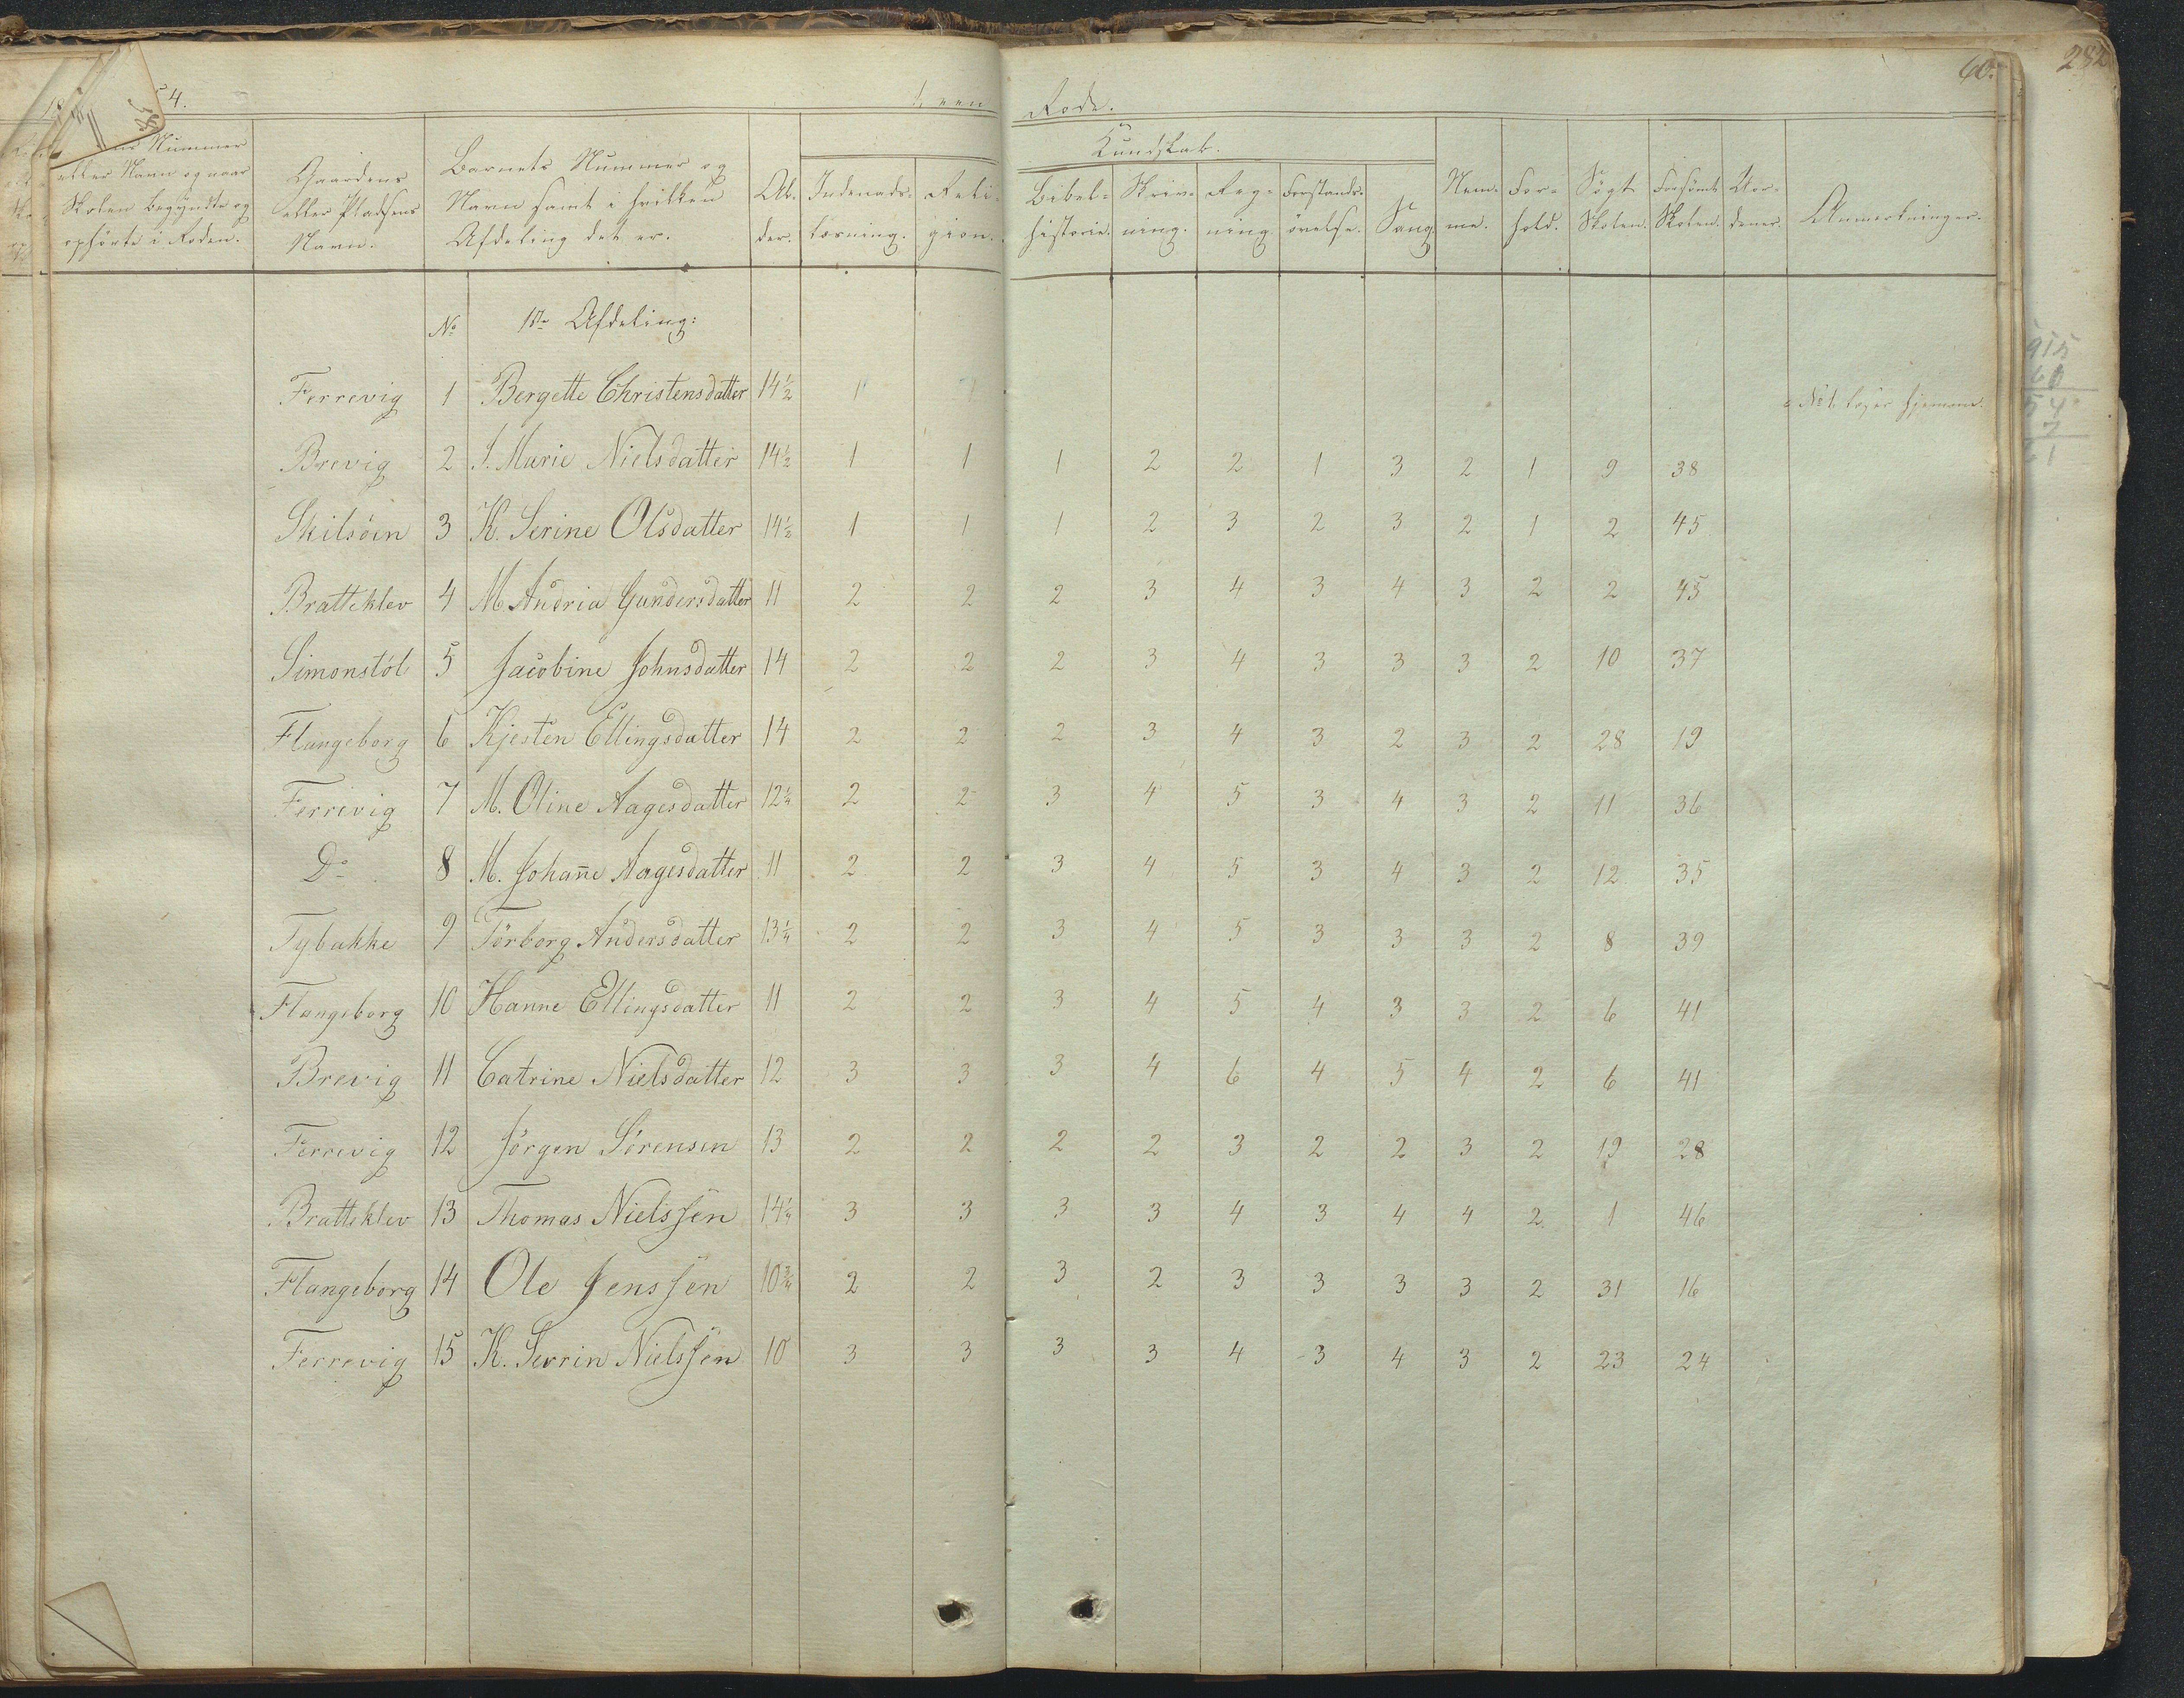 4. Rode. 60. 282
Nummer
eller Navn og naar
Skolen begyndte og
ophørte i Roden.
Gaardens
eller Pladsens
Navn.
Barnets Nummer og
Navn samt i hvilken
Afdeling det er.
Al-
der.
Kundskab.
Indenads-
læsning.
Reli-
gion.
Bibel-
historie.
Skriv-
ning.
Reg-
ning.
Forstands-
øvelse.
Sang.
Nem-
me.
For-
hold.
Søgt
Skolen.
Forsømt
Skolen.
Anmærkninger.
No Afdeling:
Ferrevig 1 Bergette Christensdatter 14½ 1 No 1 hjemme.
Brevig 2 I. Marie Nielsdatter 14½ 1 1 1 2 2 1 3 2 1 9 38
Skilsöen 3 K. Serine Olsdatter 14½ 1 1 1 2 3 2 3 2 1 2 45
Bratteklev 4 M. Andria Gundersdatter 11 2 2 2 3 4 3 4 3 2 2 45
Simonstöl 5 Jacobine Johnsdatter 14 2 2 2 3 4 3 3 3 2 10 37
Flangeborg 6 Kjesten Ellingsdatter 14 2 2 2 3 4 3 2 3 2 28 19
Ferrevig 7 M. Oline Aagesdatter 12¼ 2 2 3 4 5 3 4 3 2 11 36
Do 8 M. Johan̄e Aagesdatter 11 2 2 3 4 5 3 4 3 2 12 35
Tybakke 9 Törborg Andersdatter 13¼ 2 2 3 4 5 3 3 3 2 8 39
Flangeborg 10 Hanne Ellingsdatter 11 2 2 3 4 5 4 3 3 2 6 41
Brevig 11 Catrine Nielsdatter 12 3 3 3 4 6 4 5 4 2 6 41
Ferrevig 12 Jörgen Sörensen 13 2 2 2 2 3 2 2 3 2 19 28
Bratteklev 13 Thomas Nielssen 14¼ 3 3 3 3 4 3 4 4 2 1 46
Flangeborg 14 Ole Jenssen 10¾ 2 2 3 2 3 3 3 3 2 31 16
Ferrevig 15 K. Serrin Nielssen 10 3 3 3 3 4 3 4 3 2 23 24